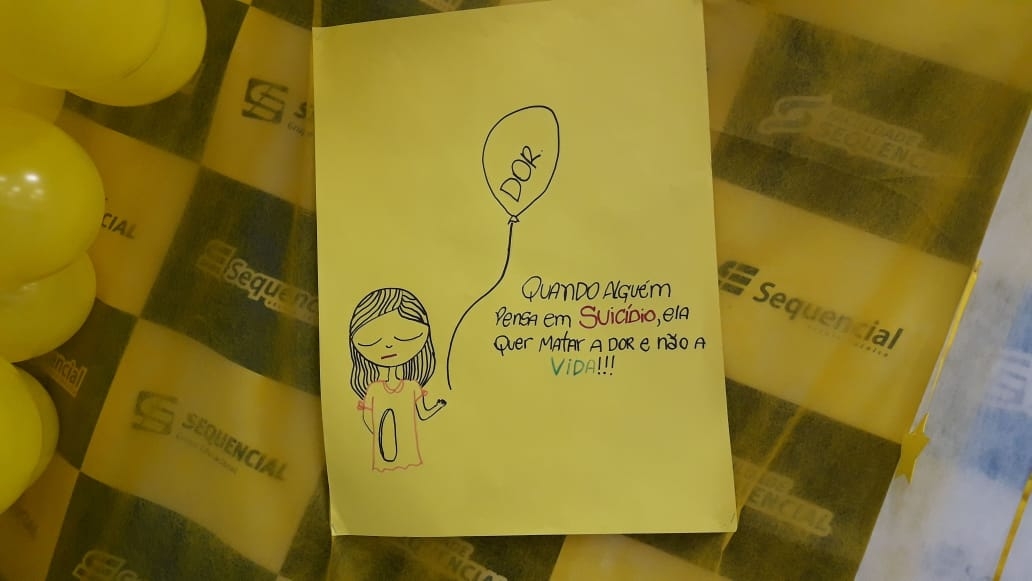 DOR.
QUANDO ALGUÉM
PENSA EM SUICÍDIO, ELA
QUER MATAR A DOR E NÃO A
VIDA!!!
FACULDADE
SEQUENCIAL
CIAL
Sequencial
Sequencial
SEQUENCIAL
Grupo Educacional